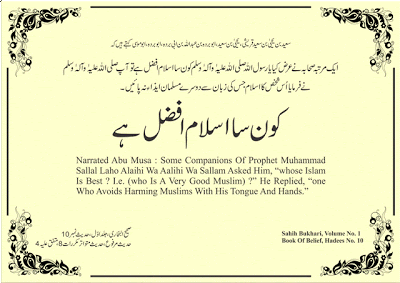 سعید بن یحیٰی بن سعید قریشی، یحیٰی بن سعید، ابوبردہ بن عبداللہ بن ابی بردہ، ابوبردہ، ابوموسیٰ کہتے ہیں کہ
ایک مرتبہ صحابہ نے عرض کیا یا رسول اللہ صلی اللہ علیہ وآلہ وسلم کون سا اسلام افضل ہے تو آپ صلی اللہ علیہ وآلہ وسلم
نے فرمایا اس شخص کا اسلام جس کی زبان سے دوسرے مسلمان ایذا نہ پائیں۔
کون سا اسلام افضل ہے
Narrated Abu Musa : Some Companions Of Prophet Muhammad
Sallal Laho Alaihi Wa Aalihi Wa Sallam Asked Him, “whose Islam
Is Best ? I.e. (who Is A Very Good Muslim) ?” He Replied, “one
Who Avoids Harming Muslims With His Tongue And Hands.”
صحیح البخاری، جلد اول، حدیث نمبر 10
حدیث مرفوع، حدیث متواتر مکررات 8، متفق علیہ 4
Sahih Bukhari, Volume No. 1
Book Of Belief, Hadees No. 10